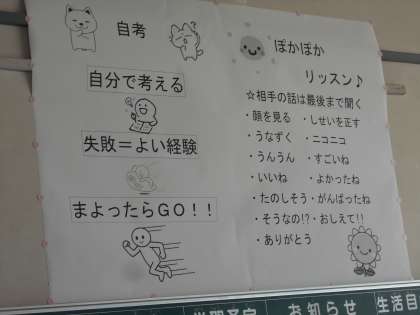 自考
自分で考える
失敗＝よい経験
まよったらGO！！
ぽかぽか
リッスン♪
☆相手の話は最後まで聞く
・顔を見る ・しせいを正す
・うなずく ・ニコニコ
・うんうん ・すごいね
・いいね ・よかったね
・たのしそう ・がんばったね
・そうなの!? ・おしえて!!
・ありがとう
お知らせ
生活目